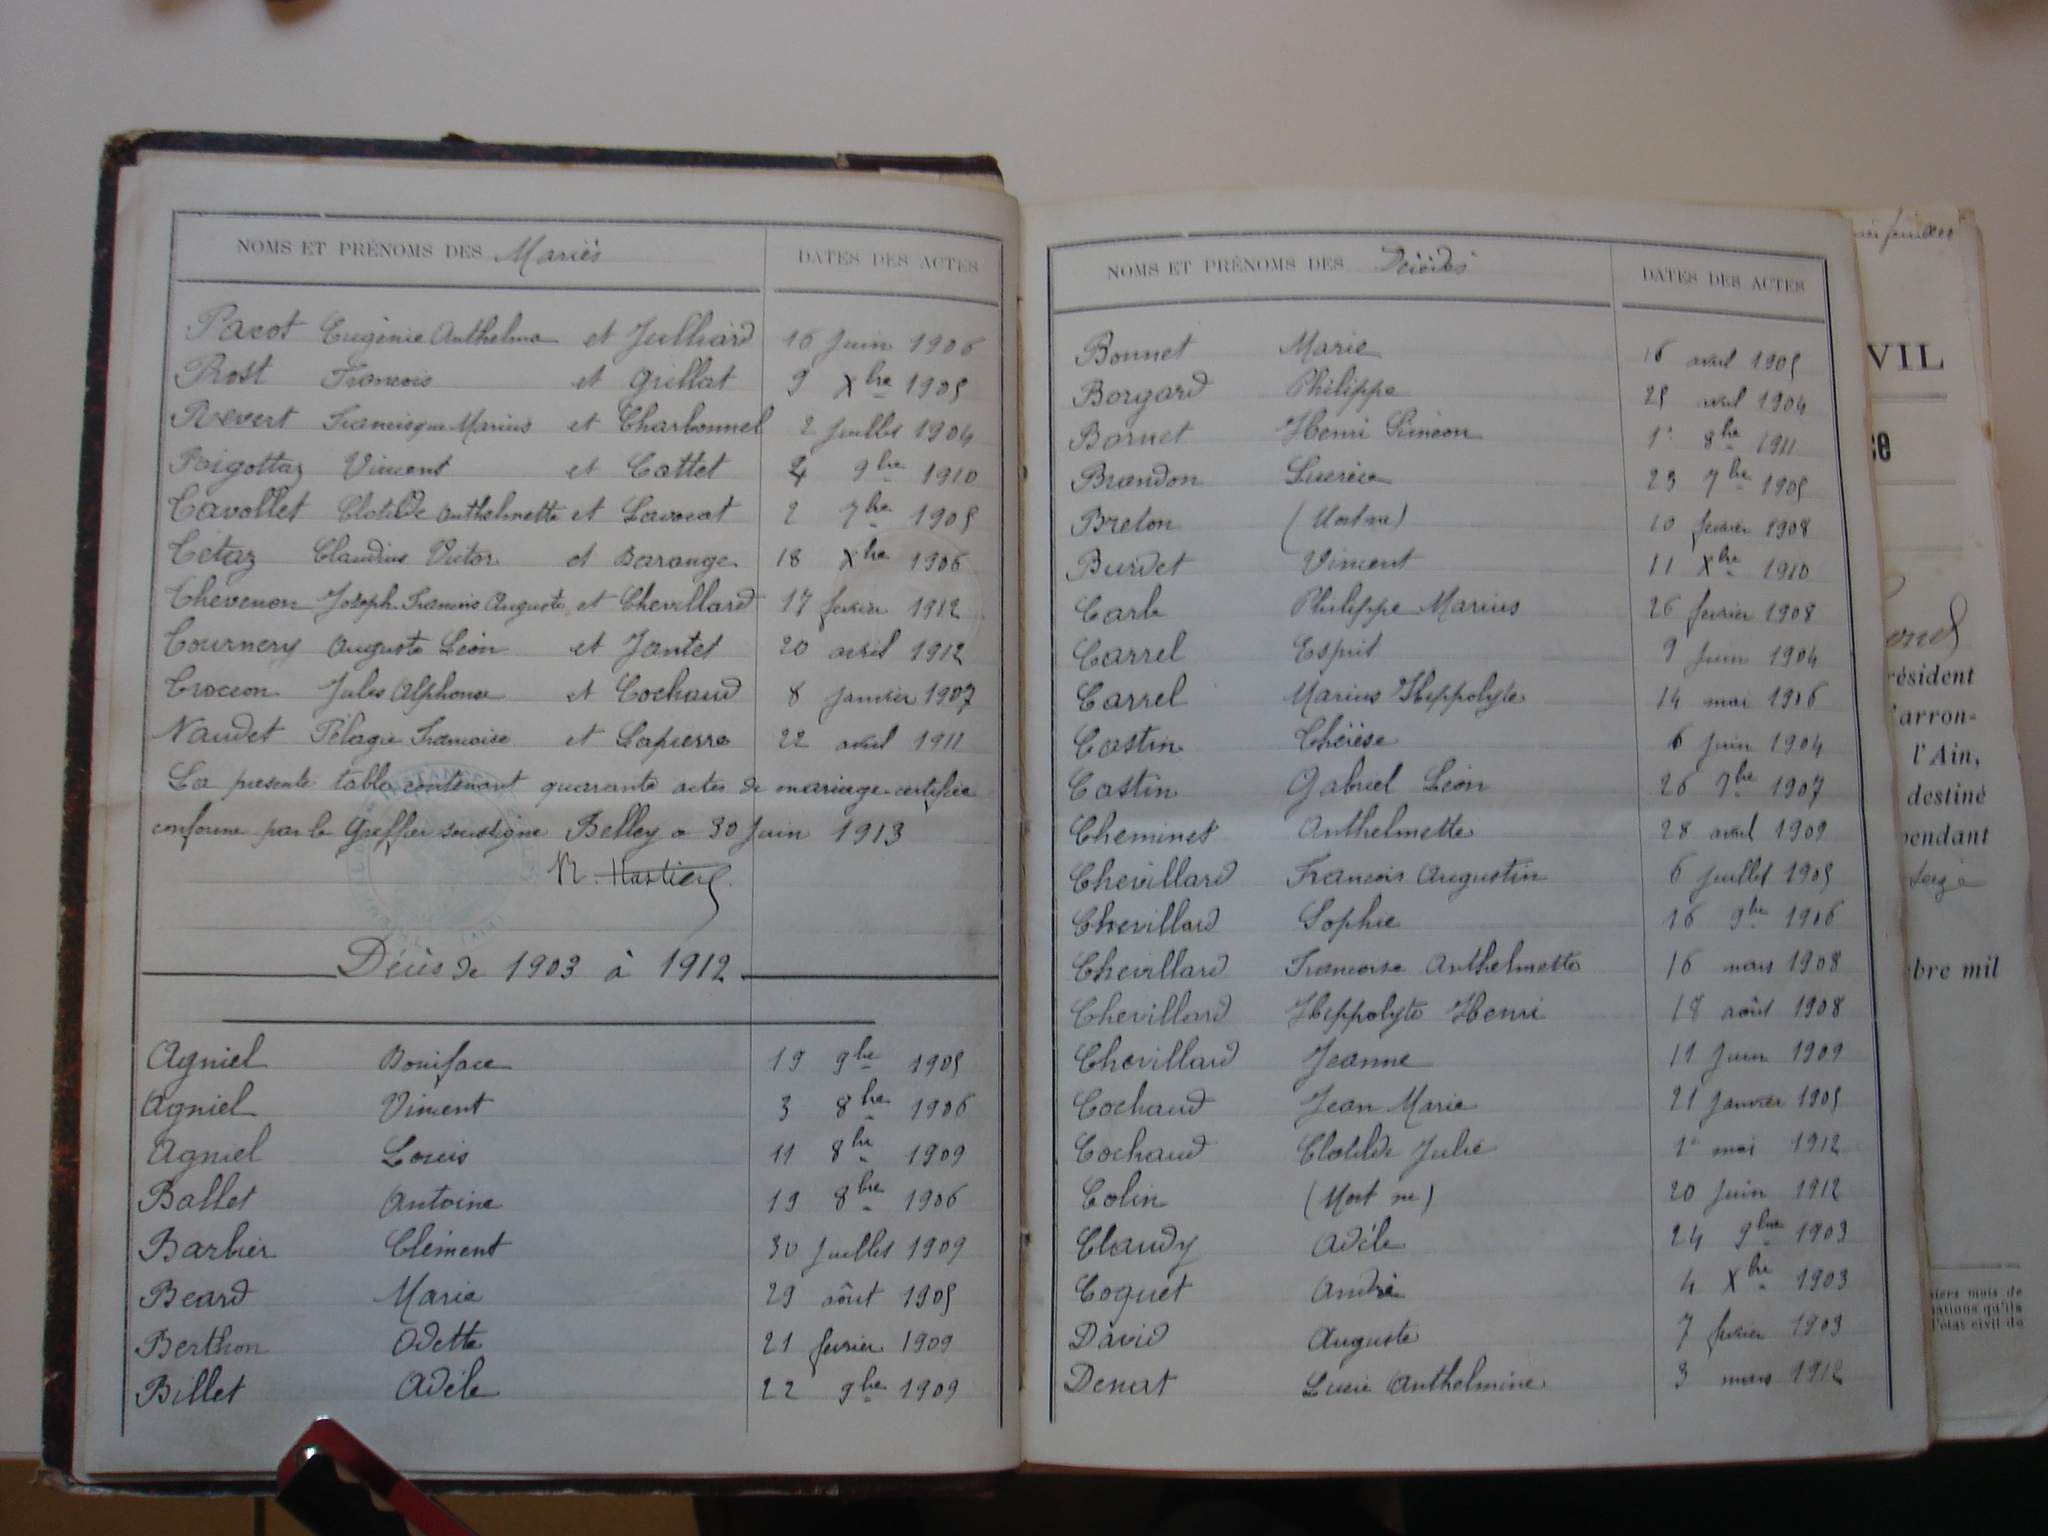 NOMS ET PRÉNOMS DES Mariés DATES DES ACTES
Pacot Eugénie Anthelme et Julliard 16 Juin 1906
Prost François et Grillat 9 Xbre 1905
Revert Francisque Marius et Charbonnel 2 Juillet 1904
Vincent et Cattet 4 9bre 1910
Tavollet Clotilde Anthelmette et Lavocat 2 7bre 1905
Tétaz Claudius Victor et Barange 18 Xbre 1906
Thevenon Joseph François Auguste et Chevillard 17 fevrier 1912
Tournery Auguste Léon et Jantet 20 avril 1912
Trocon Jules Alphonse et Cochaud 8 Janvier 1907
Naudet Pélagie Françoise et Lapierre 22 avril 1911
La presente table contenant quarante actes de mariage certifiée
conforme par le Greffier soussigné Belley a 30 Juin 1913
Décès de 1903 à 1912
Agniel Boniface 19 9bre 1905
Agniel Vincent 3 8bre 1906
Agniel Louis 11 8bre 1909
Ballet Antoine 19 8bre 1906
Barbier Clément 30 Juillet 1909
Beard Marie 29 août 1905
Berthon Odette 21 fevrier 1909
Billet Adèle 22 9bre 1909
NOMS ET PRÉNOMS DES Décédés DATES DES ACTES
Bonnet Marie 16 avril 1905
Borgard Philippe 25 avril 1904
Bornet Henri Siméon 1er 8bre 1911
Brandon Lucrèce 23 7bre 1905
Breton (Mort né) 10 fevrier 1908
Burdet Vincent 11 Xbre 1910
Carle Philippe Marius 26 fevrier 1908
Carrel Esprit 9 Juin 1904
Carrel Marius Hippolyte 14 mai 1906
Castin Thérèse 6 Juin 1904
Castin Gabriel Léon 26 7bre 1907
Cheminet Anthelmette 28 avril 1909
Chevillard François Augustin 6 Juillet 1905
Chevillard Sophie 16 9bre 1906
Chevillard Françoise Anthelmette 16 mars 1908
Chevillard Hippolyte Henri 18 août 1908
Chevillard Jeanne 11 Juin 1909
Cochaud Jean Marie 21 Janvier 1905
Cochaud Clotilde Julie 1er mai 1912
Colin (Mort né) 20 Juin 1912
Claudy Adèle 24 9bre 1903
Coquet André 4 Xbre 1903
David Auguste 7 fevrier 1903
Denat Lucie Anthelmine 3 mars 1912
VIL
ce
résident
'arron-
l'Ain,
destiné
pendant
bre mil
iers mois de
ations qu'ils
l'état civil du